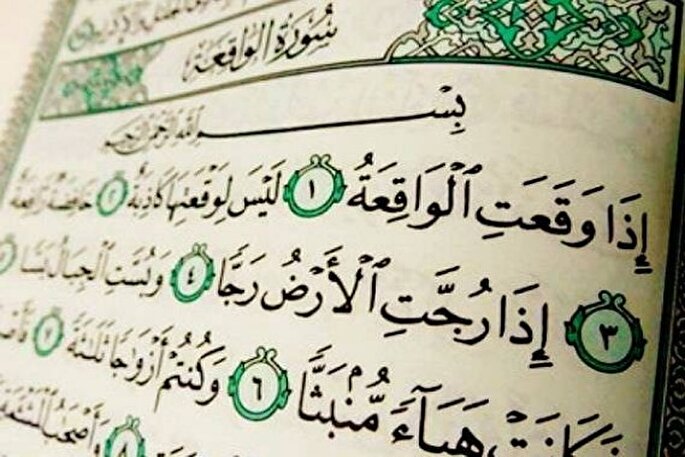 سُورَةُ الوَاقِعَةِ
بِسْمِ اللَّهِ الرَّحْمَٰنِ الرَّحِيمِ
إِذَا وَقَعَتِ ٱلْوَاقِعَةُ ١ لَيْسَ لِوَقْعَتِهَا كَاذِبَةٌ ٢ خَافِضَةٌ رَّافِعَةٌ
٣ إِذَا رُجَّتِ ٱلْأَرْضُ رَجًّا ٤ وَبُسَّتِ ٱلْجِبَالُ بَسًّا
فَكَانَتْ هَبَآءً مُّنۢبَثًّا ٦ وَكُنتُمْ أَزْوَٰجًا ثَلَٰثَةً ٧
٨ وَأَصْحَٰبُ ٱلْمَشْـَٔمَةِ